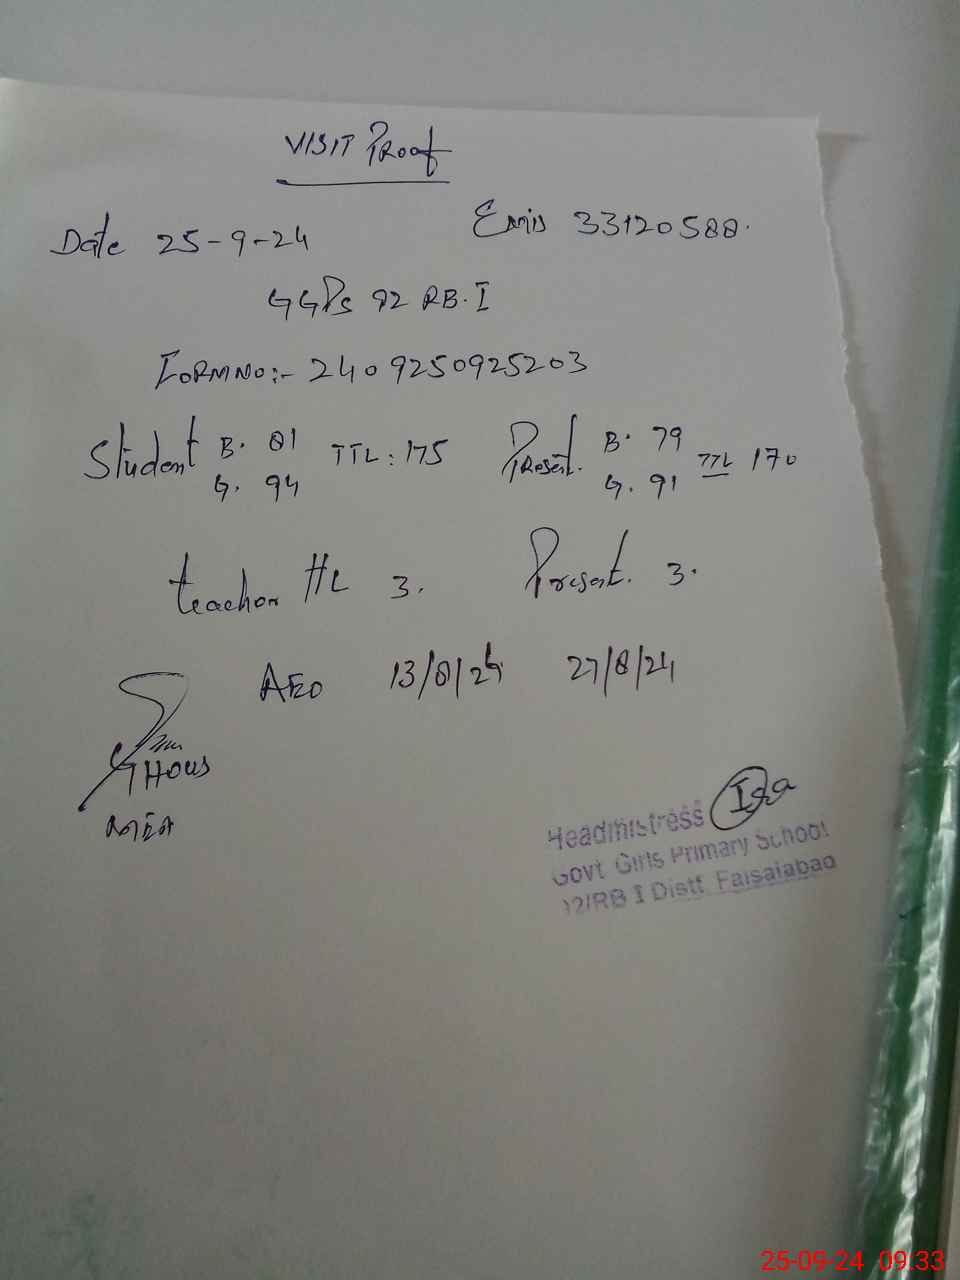 VISIT PRoof
Date 25-9-24 Emis 33120588.
GGPS 92 RB.I
FORM NO:- 2409250925203
Student B. 81 TTL: 175 Present. B. 79 TTL 170
G. 94 G. 91
teacher ttL 3. Present. 3.
AEO 13/8/24 27/8/24
GHOUS
MEA
Headmistress
Govt Girls Primary School
2/RB I Distt Faisalabad
25-09-24 09:33